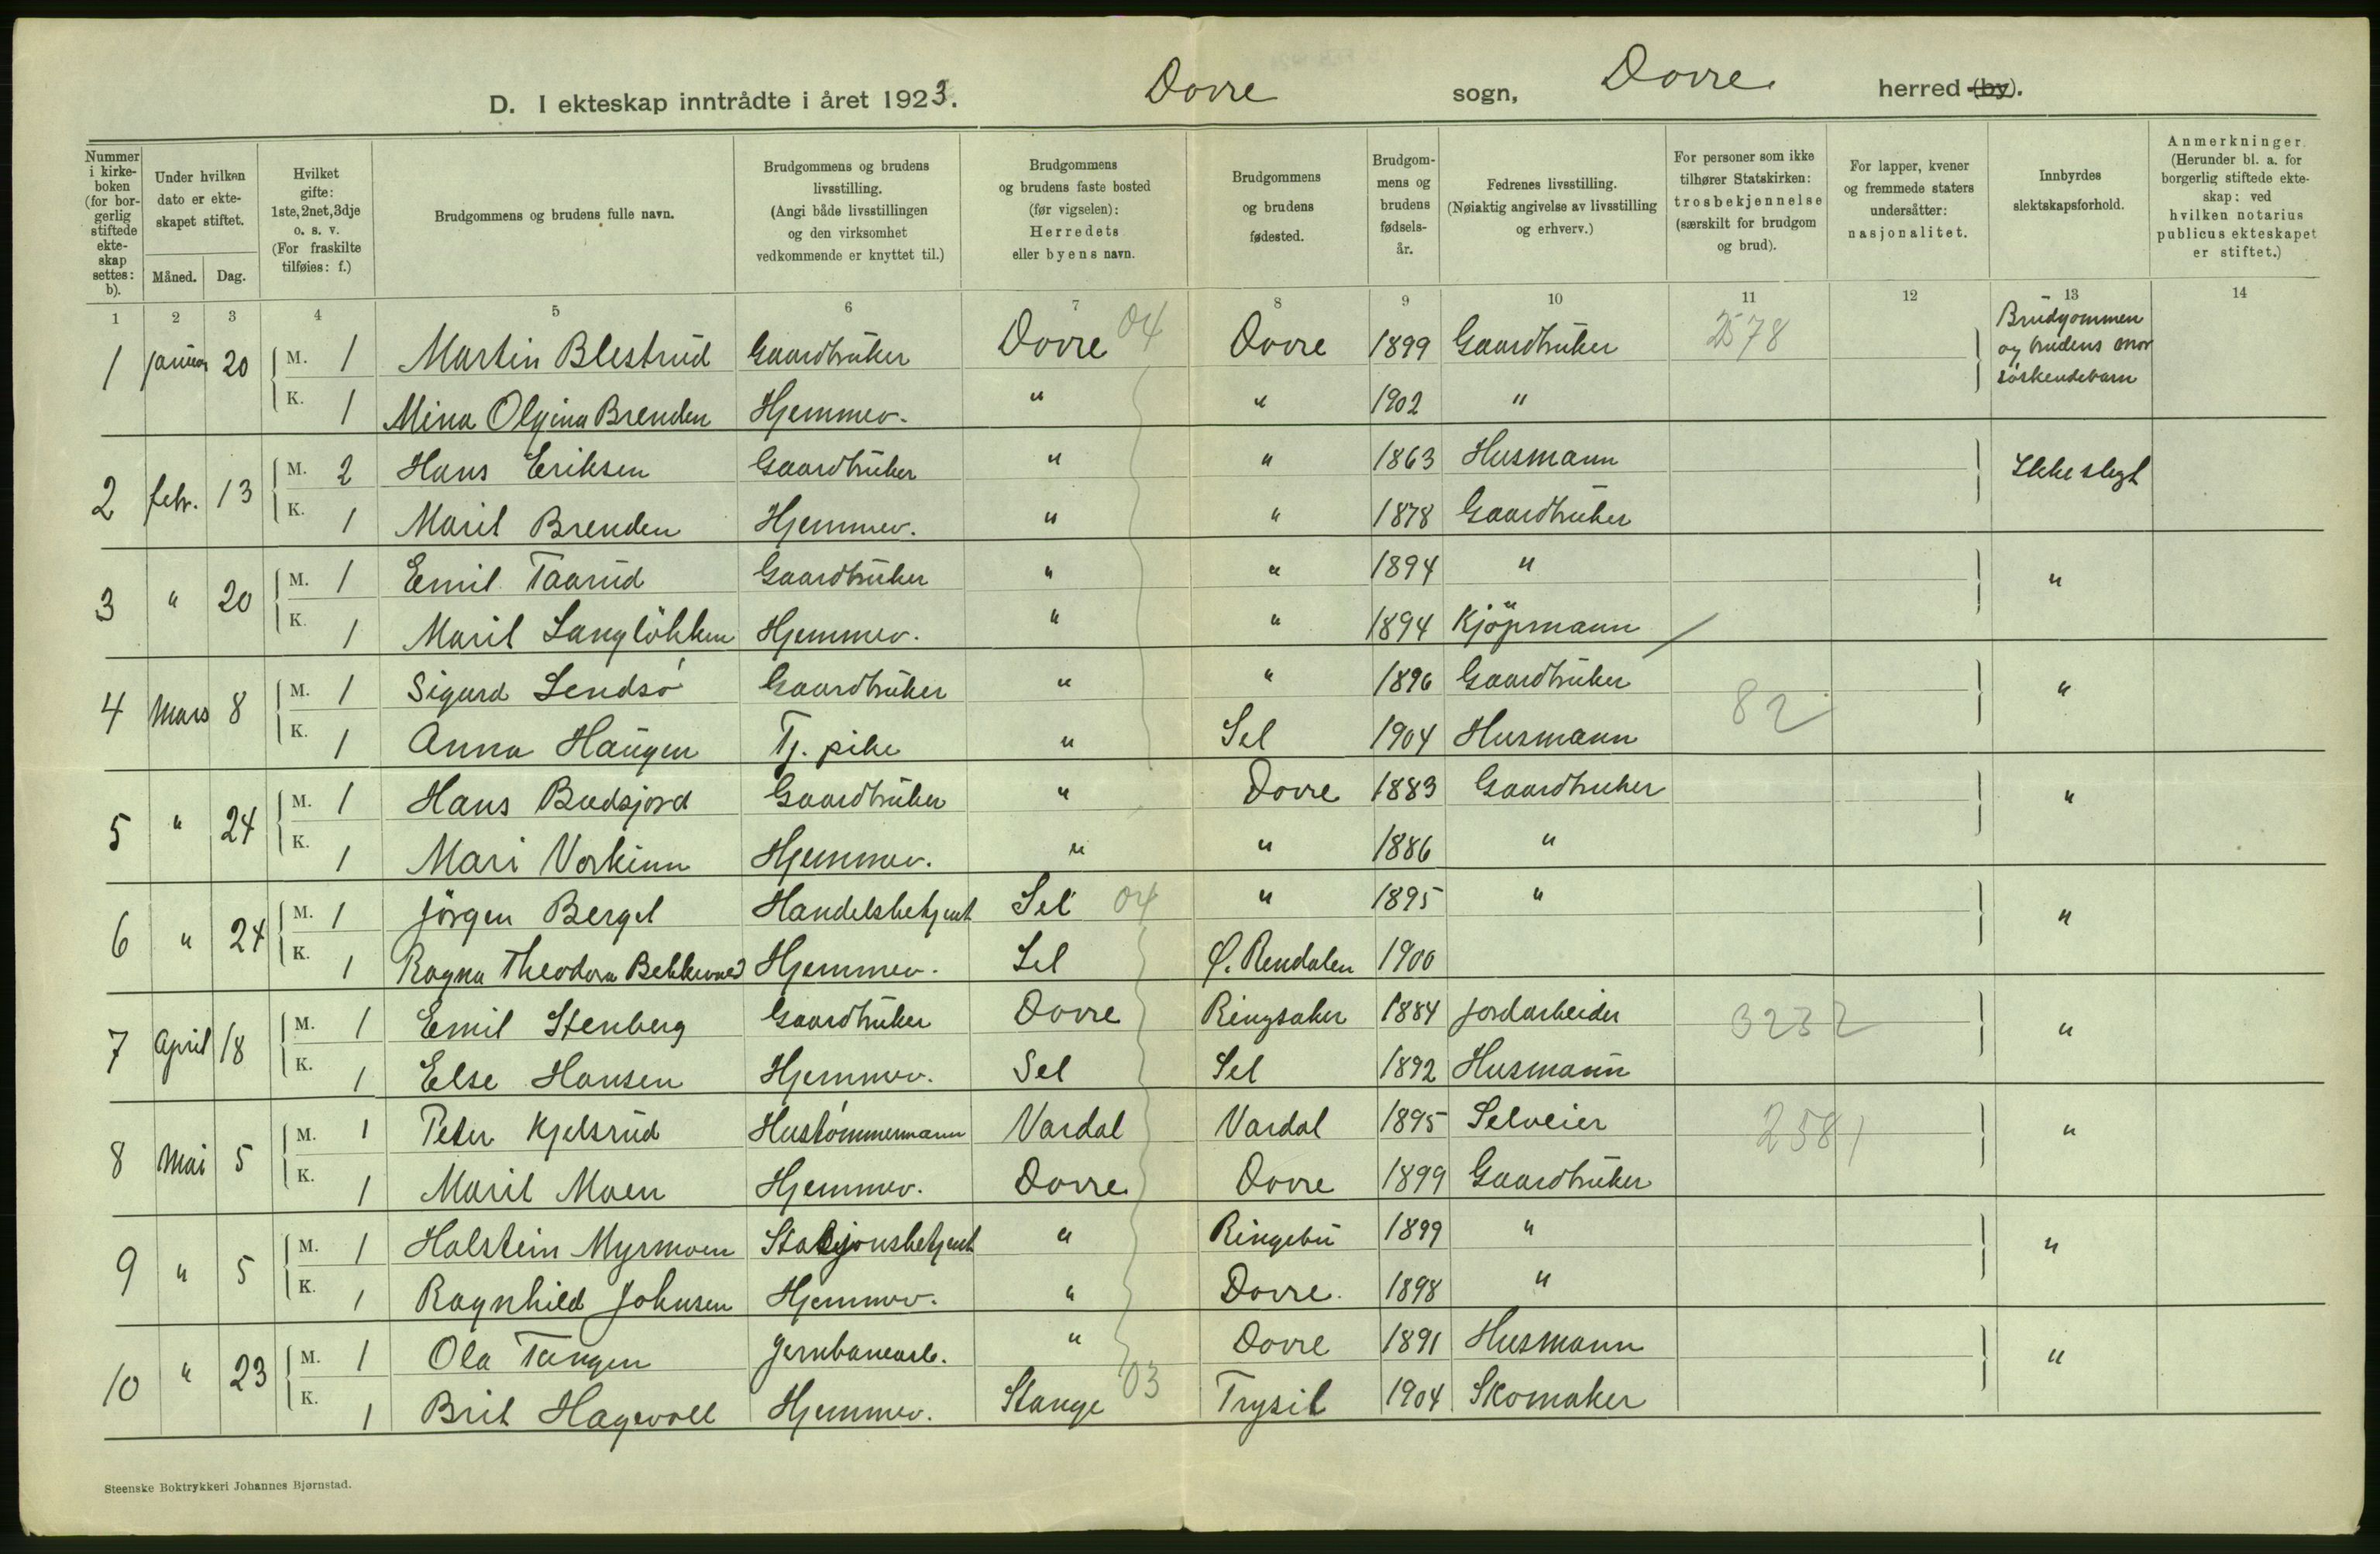 D. I ekteskap inntrådte i året 1923. Dovre sogn, Dovre herred (by).
Nummer i kirkeboken (for borgerlig stiftede ekteskap settes: b).
Under hvilken dato er ekteskapet stiftet.
Måned. Dag.
Hvilket gifte: 1ste, 2net, 3dje o. s. v. (For fraskilte tilføies: f.)
Brudgommens og brudens fulle navn.
Brudgommens og brudens livsstilling. (Angi både livsstillingen og den virksomhet vedkommende er knyttet til.)
Brudgommens og brudens faste bosted (før vigselen): Herredets eller byens navn.
Brudgommens og brudens fødested.
Brudgommens og brudens fødselsår.
Fedrenes livsstilling. (Nøiaktig angivelse av livsstilling og erhverv.)
For personer som ikke tilhører Statskirken: trosbekjennelse (særskilt for brudgom og brud).
For lapper, kvener og fremmede staters undersåtter: nasjonalitet.
Innbyrdes slektskapsforhold.
Anmerkninger. (Herunder bl. a. for borgerlig stiftede ekteskap: ved hvilken notarius publicus ekteskapet er stiftet.)
1 2 3 4 5 6 7 8 9 10 11 12 13 14
1 januar 20 M. 1 Martin Blestrud Gaardbruker Dovre 04 Dovre 1899 Gaardbruker 2578 Brudgommen og brudens mor söskendebarn
K. 1 Mina Olgina Brenden Hjemmev. " " 1902 "
2 febr. 13 M. 2 Hans Eriksen Gaardbruker " " 1863 Husmann Ikke slegt
K. 1 Marit Brenden Hjemmev. " " 1878 Gaardbruker
3 " 20 M. 1 Emil Taarud Gaardbruker " " 1894 " "
K. 1 Marit Langlökken Hjemmev. " " 1894 Kjöpmann
4 Mars 8 M. 1 Sigurd Lendsö Gaardbruker " " 1896 Gaardbruker 82 "
K. 1 Anna Haugen Tj. pike " Sel 1904 Husmann
5 " 24 M. 1 Hans Budsjord Gaardbruker " Dovre 1883 Gaardbruker "
K. 1 Mari Vorkinn Hjemmev. " " 1886 "
6 " 24 M. 1 Jörgen Berget Handelsbetjent Sel 04 " 1895 " "
K. 1 Ragna Theodora Hjemmev. Sel Ø. Rendalen 1900
7 April 18 M. 1 Emil Stenberg Gaardbruker Dovre Ringsaker 1884 Jordarbeider 3232 "
K. 1 Else Hansen Hjemmev. Sel Sel 1892 Husmann
8 Mai 5 M. 1 Peter Kjelsrud Hustömmermann Vardal Vardal 1895 Selveier 2581 "
K. 1 Marit Moen Hjemmev. Dovre Dovre 1899 Gaardbruker
9 " 5 M. 1 Halstein Myrmoen Stasjonsbetjent " Ringebu 1899 " "
K. 1 Ragnhild Johnsen Hjemmev. " Dovre. 1898 "
10 " 23 M. 1 Ola Tangen Jernbanearb. " Dovre 1891 Husmann "
K. 1 Brit Hagevoll Hjemmev. Stange 03 Trysil 1904 Skomaker
Steenske Boktrykkeri Johannes Bjørnstad.